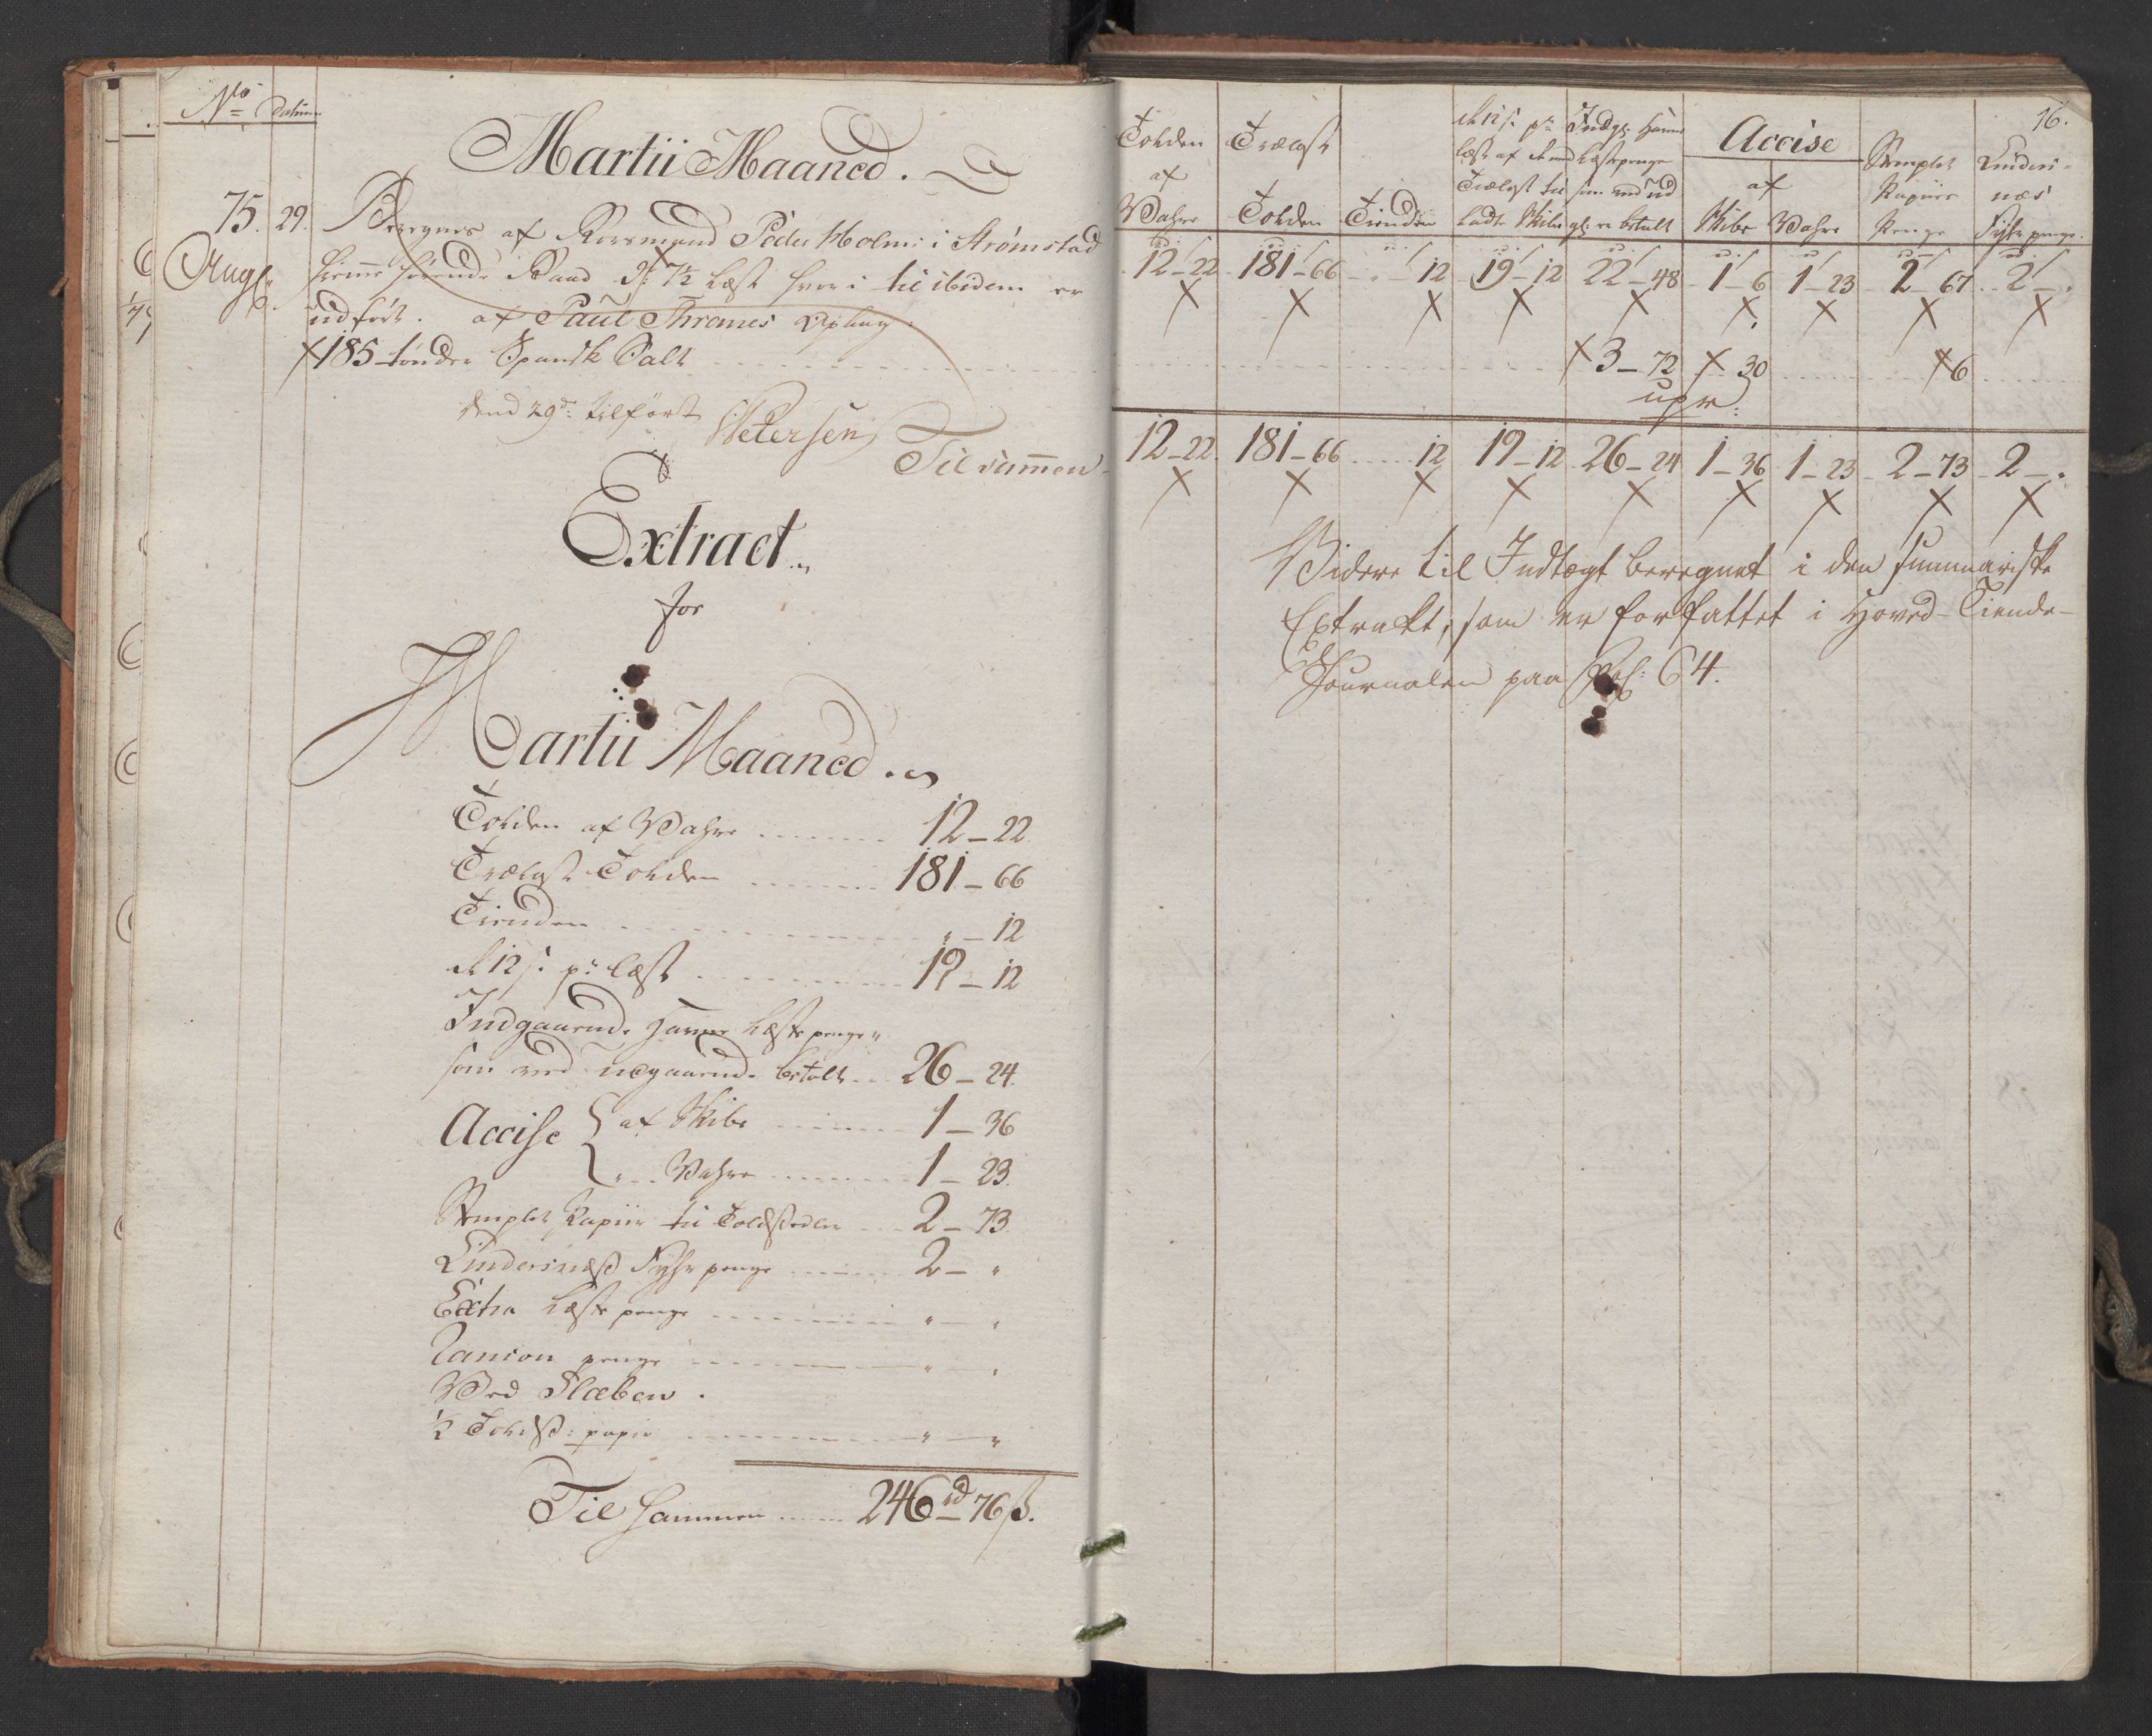 No Datum
Martii Maaned.
75. 29. Beregnes af Reersmand Peder Holm: i Strømstad
hiemme hørende Baad d: 7½ Læst hvor i til ibidem er
udført. af Paul Thranes Oplaug.
185 tønder Spansk Salt
dend 29de: tilført
Petersen
Tilsammen
Extract
for
Martii Maaned.
Tolden af Vahre 12 - 22
Trælast Tolden 181 - 66
Tienden " - 12
de 12 s. pr Læst 19 - 12
Indgaaende Hanne Læstepenge
som ved udgaaende betalt 26 - 24
Accise { af Skibe 1 - 36
" Vahre 1 - 23
Stemplet Papiir til Toldsedler 2 - 73
Lindersnæss Fyhr penge 2 - "
Extra Læste penge " - "
Ranson penge " "
Ved Slæben.
½ Toldss: papir " - "
Til sammen 246 rd 76 s.
16.
Tolden af Vahre
Trælast Tolden
Tienden
de 12 s. pr Læst af Trælast til ladte Skibe
Indg: Hanne Læstepenge som ved ud g: er betalt
Accise af Skibe Vahre
Stemplet Papiirs Penge
Linders-næs Fyhr penge.
12-22 181-66 " 12 19-12 22-48 1-6 1-23 2-67 2-"
3-72 30 6
12-22 181-66 12 19-12 26-24 1-36 1-23 2-73 2-"
Videre til Indtægt beregnet i den summariske
Extrakt, som er forfattet i Hoved-Tiende-
Journalen paa Fol: 64.